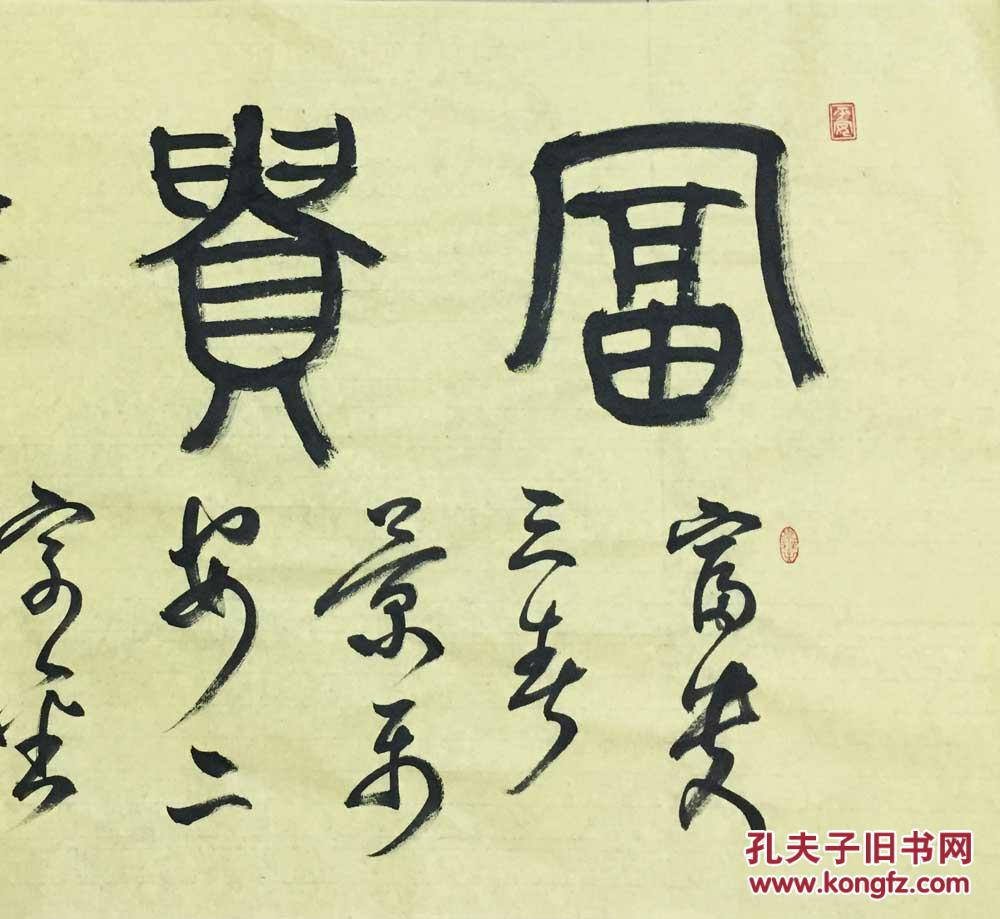 富貴
富貴
三春
景平
安二
字金
孔夫子旧书网
www.kongfz.com